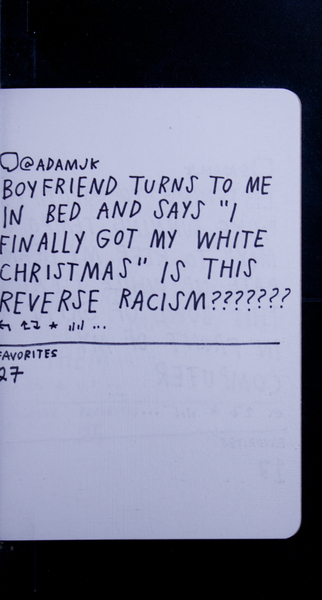 @ADAMJK
BOYFRIEND TURNS TO ME
IN BED AND SAYS "I
FINALLY GOT MY WHITE
CHRISTMAS" IS THIS
REVERSE RACISM???????
...
FAVORITES
27